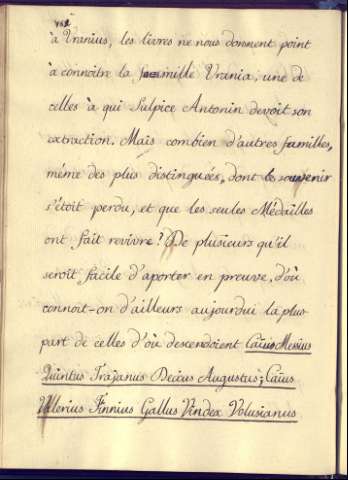 à Uranius, les livres ne nous donnent point
à connoitre la famille Urania, une de
celles à qui Sulpice Antonin devoit son
extraction. Mais combien d'autres familles,
même des plus distinguées, dont le souvenir
s'étoit perdu, et que les seules Médailles
ont fait revivre? De plusieurs qu'il
seroit facile d'aporter en preuve, d'où
connoit-on d'ailleurs aujourdui la plus
part de celles d'où descendoient Caïus Messius
Quintus Trajanus Decius Augustus; Caïus
Vallerius Finnius Gallus Vindex Volusianus